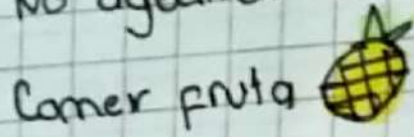 No
Comer fruta